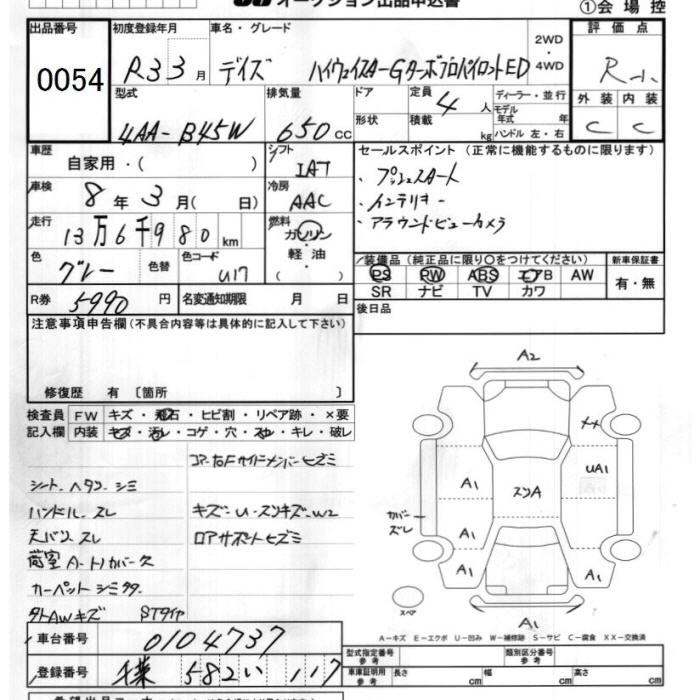 ①会 場 控
出品番号 0054
初度登録年月 R3 3 月
車名・グレード デイズ ハイウェイスターGターボプロパイロットED
2WD
・
4WD
評 価 点
外 装 内 装
C C
型式 4AA-B45W
排気量 650 cc
ドア
形状
定員 4 人
積載 kg
ディーラー・並行
モデル
年式 年
ハンドル 左・右
車歴 自家用・( )
シフト IAT
車検 8 年 3 月( 日)
冷房 AAC
走行 13万6千980 km
燃料 ガソリン
軽 油
( )
色 グレー 色替
色コード U17
R券 5990 円
名変通知期限 月 日
セールスポイント (正常に機能するものに限ります)
・プッシュスタート
・インテリキー
・アラウンドビューカメラ
装備品 (純正品に限り○をつけてください)
PS PW ABS エアB AW
SR ナビ TV カワ
新車保証書
有・無
後日品
注意事項申告欄(不具合内容等は具体的に記入して下さい)
修復歴 有 〔箇所 〕
検査員
記入欄
FW キズ・飛石・ヒビ割・リペア跡・×要
内装 キズ・汚レ・コゲ・穴・スレ・キレ・破レ
コアー右Fサイドメンバーヒズミ
シート ヘタリ シミ
ハンドル スレ
キズー U-スリキズ-W2
天バリ スレ
ロアサポートヒズミ
荷室 A-トリカバー欠
カーペット シミ
タトAWキズ STタイヤ
A2
UA1
A1
スリA
A1
カバー
ズレ
A1
A1
スペア
A1
A-キズ E-エクボ U-凹み W-補修跡 S-サビ C-腐食 XX-交換済
車台番号 0104737
登録番号 千葉 582 い 117
型式指定番号
参 考
類別区分番号
参 考
車庫証明用
参 考
長さ cm
幅 cm
高さ cm